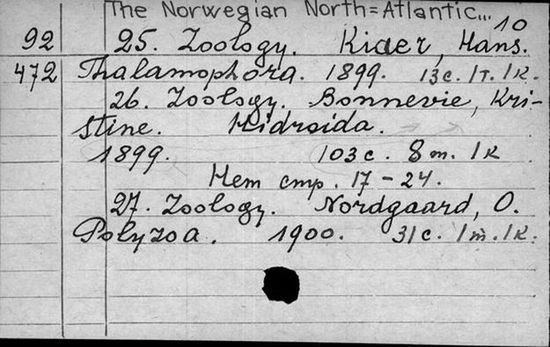 The Norwegian North=Atlantic...
10
92 25. Zoology. Kiaer, Hans.
472 Thalamophora. 1899. 13c. 1т. 1к.
26. Zoology. Bonnevie, Kri-
stine. Hidroida.
1899. 103c. 8m. 1к
Нем стр. 17-24.
27. Zoology. Nordgaard, O.
Polyzoa. 1900. 31c. 1m. 1к.